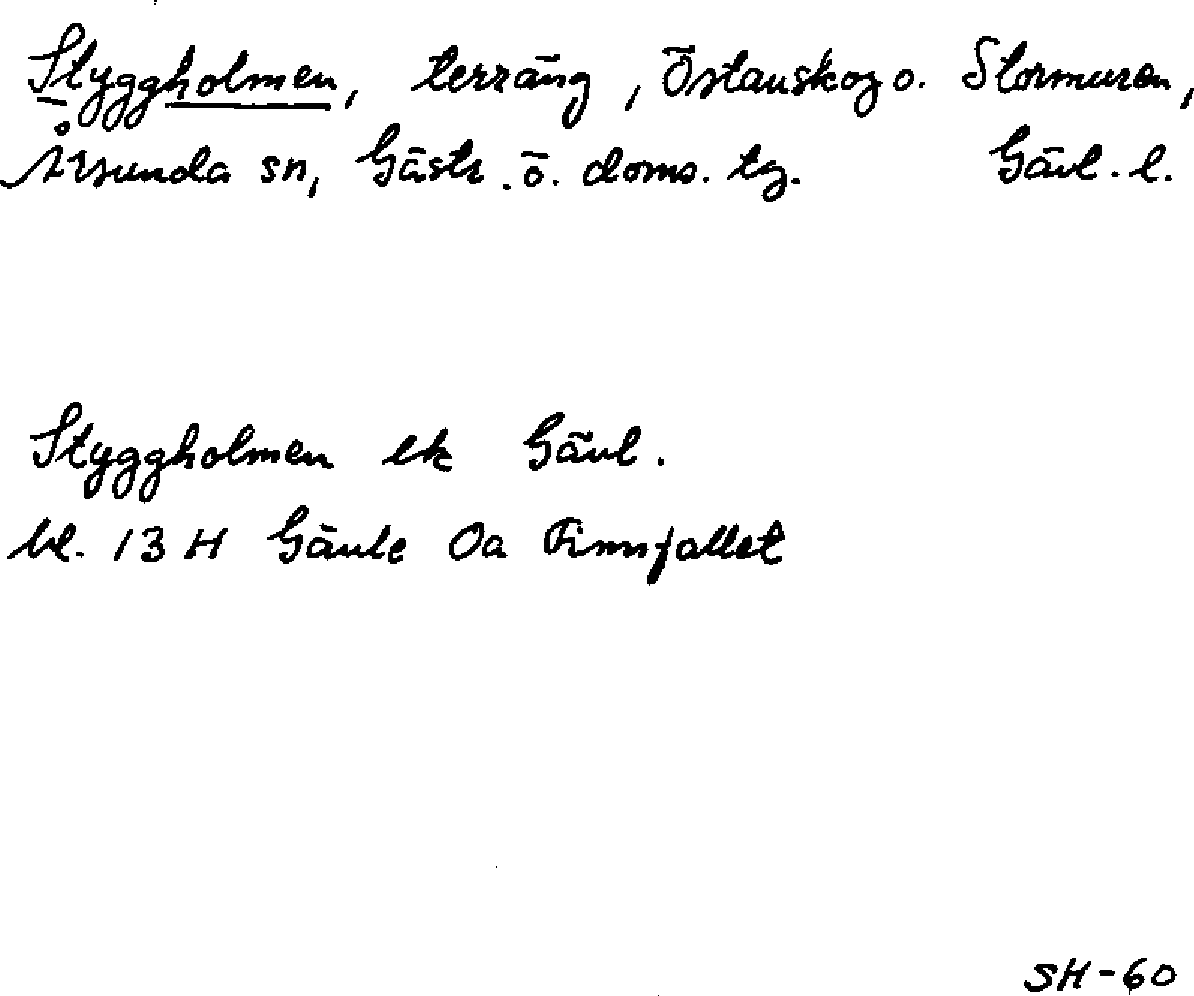 Styggholmen, terräng, Östanskog o. Stormuren,
Årsunda sn, Gästr. ö. doms. tg. Gävl. l.
Styggholmen ek Gävl.
bl. 13 H Gävle 0a Finnfallet
SH-60